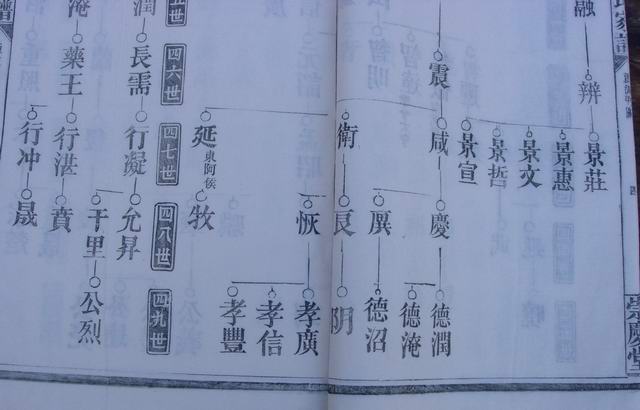 氏家譜
崇慶堂
融
辨
景莊
景惠
景文
景哲
景宣
震
咸
慶
德潤
德淹
衛
㞋
德沼
阴
恢
孝廣
孝信
孝豐
延東阿侯
牧
四六世
四七世
四八世
四九世
潤
長需
行凝
允昇
千里
公烈
淹
藥王
行湛
賁
行冲
晟
譜